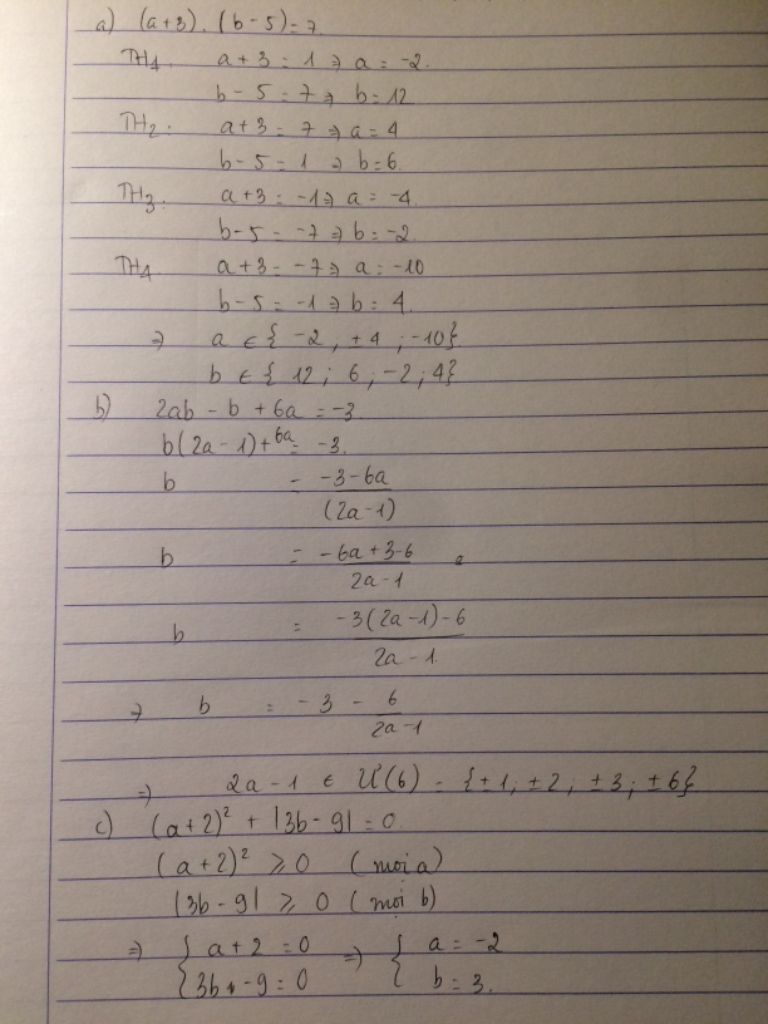 a) (a+3).(b-5)=7
TH1. a+3=1 => a=-2.
b-5=7 => b=12
TH2: a+3=7 => a=4
b-5=1 => b=6.
TH3. a+3=-1 => a=-4.
b-5=-7 => b=-2
TH4 a+3=-7 => a=-10
b-5=-1 => b=4.
=> a ∈ {-2, ±4; -10}
b ∈ {12; 6; -2; 4}
b) 2ab - b + 6a = -3.
b(2a-1)+6a = -3.
b = \frac{-3-6a}{(2a-1)}
b = \frac{-6a+3-6}{2a-1}
b = \frac{-3(2a-1)-6}{2a-1}
=> b = -3 - \frac{6}{2a-1}
=> 2a-1 ∈ Ư(6) = {±1; ±2; ±3; ±6}
c) (a+2)² + |3b-9| = 0.
(a+2)² ⩾ 0 (mọi a)
|3b-9| ⩾ 0 (mọi b)
=> { a+2 = 0 => { a = -2
3b-9=0 b=3.